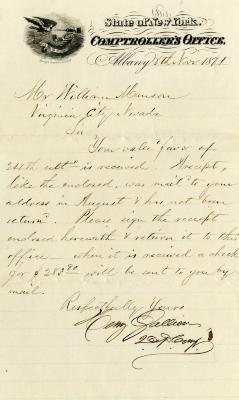 State of New York.
Comptroller's Office,
Albany 8th Nov 1871
Mr William Munson
Virginia City Nevada
Sir
Your valued favor of
24th ulto is received. Receipt,
like the enclosed, was mail'd to your
address in August & has not been
return'd. Please sign the receipt
enclosed herewith & return it to this
office - when it is received a check
for $ 213 90 will be sent to you by
mail.
Respectfully Yours
Gallien
2d Dp Comp